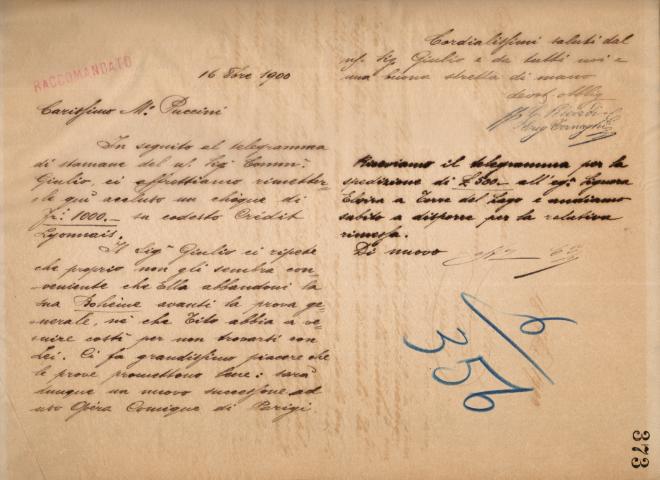 RACCOMANDATO
16 9bre 1900
Carissimo Mo. Puccini
In seguito al telegramma
di stamane del ns/ Sig. Comm.
Giulio, ci affrettiamo rimetter=
le qui accluso un chèque di
Fr: 1000.— su codesto Crédit
Lyonnais.
Il Sigr Giulio ci ripete
che proprio non gli sembra con=
veniente che Ella abbandoni la
sua Bohème avanti la prova ge=
nerale, nè che Tito abbia a ve=
nire costì per non trovarti con
Lei. Ci fa grandissimo piacere che
le prove promettono bene: sarà
dunque un nuovo successone ad
uso Opéra Comique di Parigi
Cordialissimi saluti dal
ns/ Sig Giulio e da tutti noi e
una buona stretta di mano
devot. Obblig
G. Ricordi & C.
Riceviamo il telegramma per la
spedizione di L. 300.— all'eg. Signora
Elvira a Torre del Lago e andiamo
subito a disporre per la relativa
rimessa.
Di nuovo
6/356
373